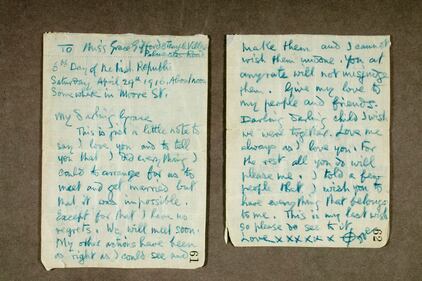 To Miss Grace Gifford 8 Temple Villas
Palmerston Road
6th Day of the Irish Republic
Saturday April 29th 1916. About noon
Somewhere in Moore St.
My Darling Grace
This is just a little note to
say I love you and to tell
you that I did everything I
could to arrange for us to
meet and get married but
that it was impossible.
Except for that I have no
regrets. We will meet soon.
My other actions have been
as right as I could see and
61
make them and I cannot
wish them undone. You at
any rate will not misjudge
them. Give my love to
my people and friends.
Darling Darling child I wish
we were together. Love me
always as I love you. For
the rest all you do will
please me. I told a few
people that I wish you to
have everything that belongs
to me. This is my last wish
so please do see to it
Love x x x x x x Joe
62